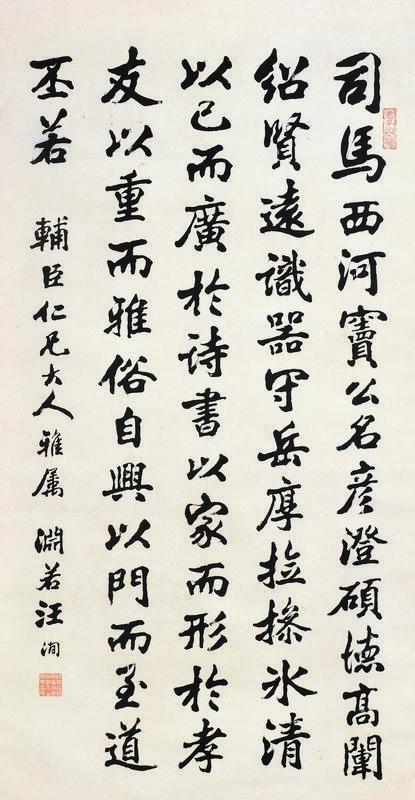 司馬西河竇公名彥澄碩德高闡
紹賢遠識器守岳厚撿操冰清
以己而廣於詩書以家而形於孝
友以重而雅俗自興以門而至道
丕若
輔臣仁兄大人雅屬 淵若汪洵